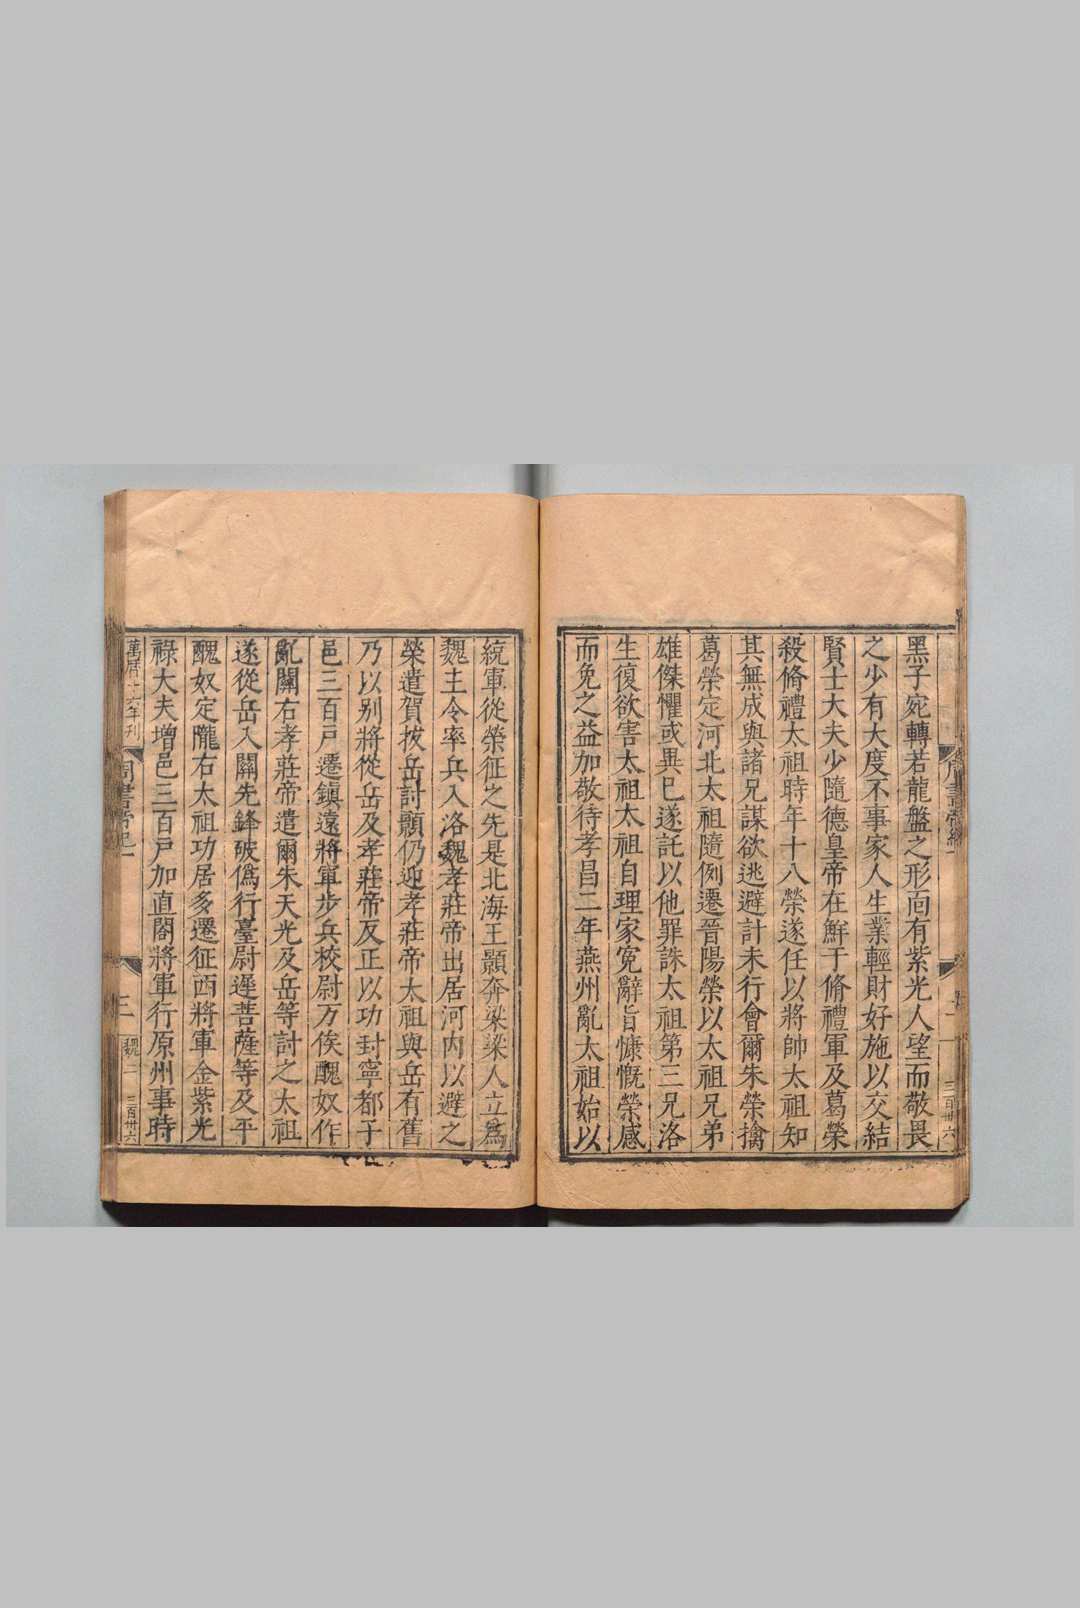 黑子宛轉若龍盤之形面有紫光人望而敬畏
之少有大度不事家人生業輕財好施以交結
賢士大夫少隨德皇帝在鮮于脩禮軍及葛榮
殺脩禮太祖時年十八榮遂任以將帥太祖知
其無成與諸兄謀欲逃避計未行會爾朱榮擒
葛榮定河北太祖隨例遷晉陽榮以太祖兄弟
雄傑懼或異己遂託以他罪誅太祖第三兄洛
生復欲害太祖太祖自理家冤辭旨慷慨榮感
而免之益加敬待孝昌二年燕州亂太祖始以
統軍從榮征之先是北海王顥奔梁梁人立爲
魏主令率兵入洛魏孝莊帝出居河内以避之
榮遣賀拔岳討顥仍迎孝莊帝太祖與岳有舊
乃以别將從岳及孝莊帝反正以功封寧都子
邑三百戸遷鎮遠將軍步兵校尉万俟醜奴作
亂關右孝莊帝遣爾朱天光及岳等討之太祖
遂從岳入關先鋒破僞行臺尉遲菩薩等及平
醜奴定隴右太祖功居多遷征西將軍金紫光
祿大夫增邑三百戸加直閤將軍行原州事時
萬曆十六年刊
周書帝紀一
三
魏二
三百卅六